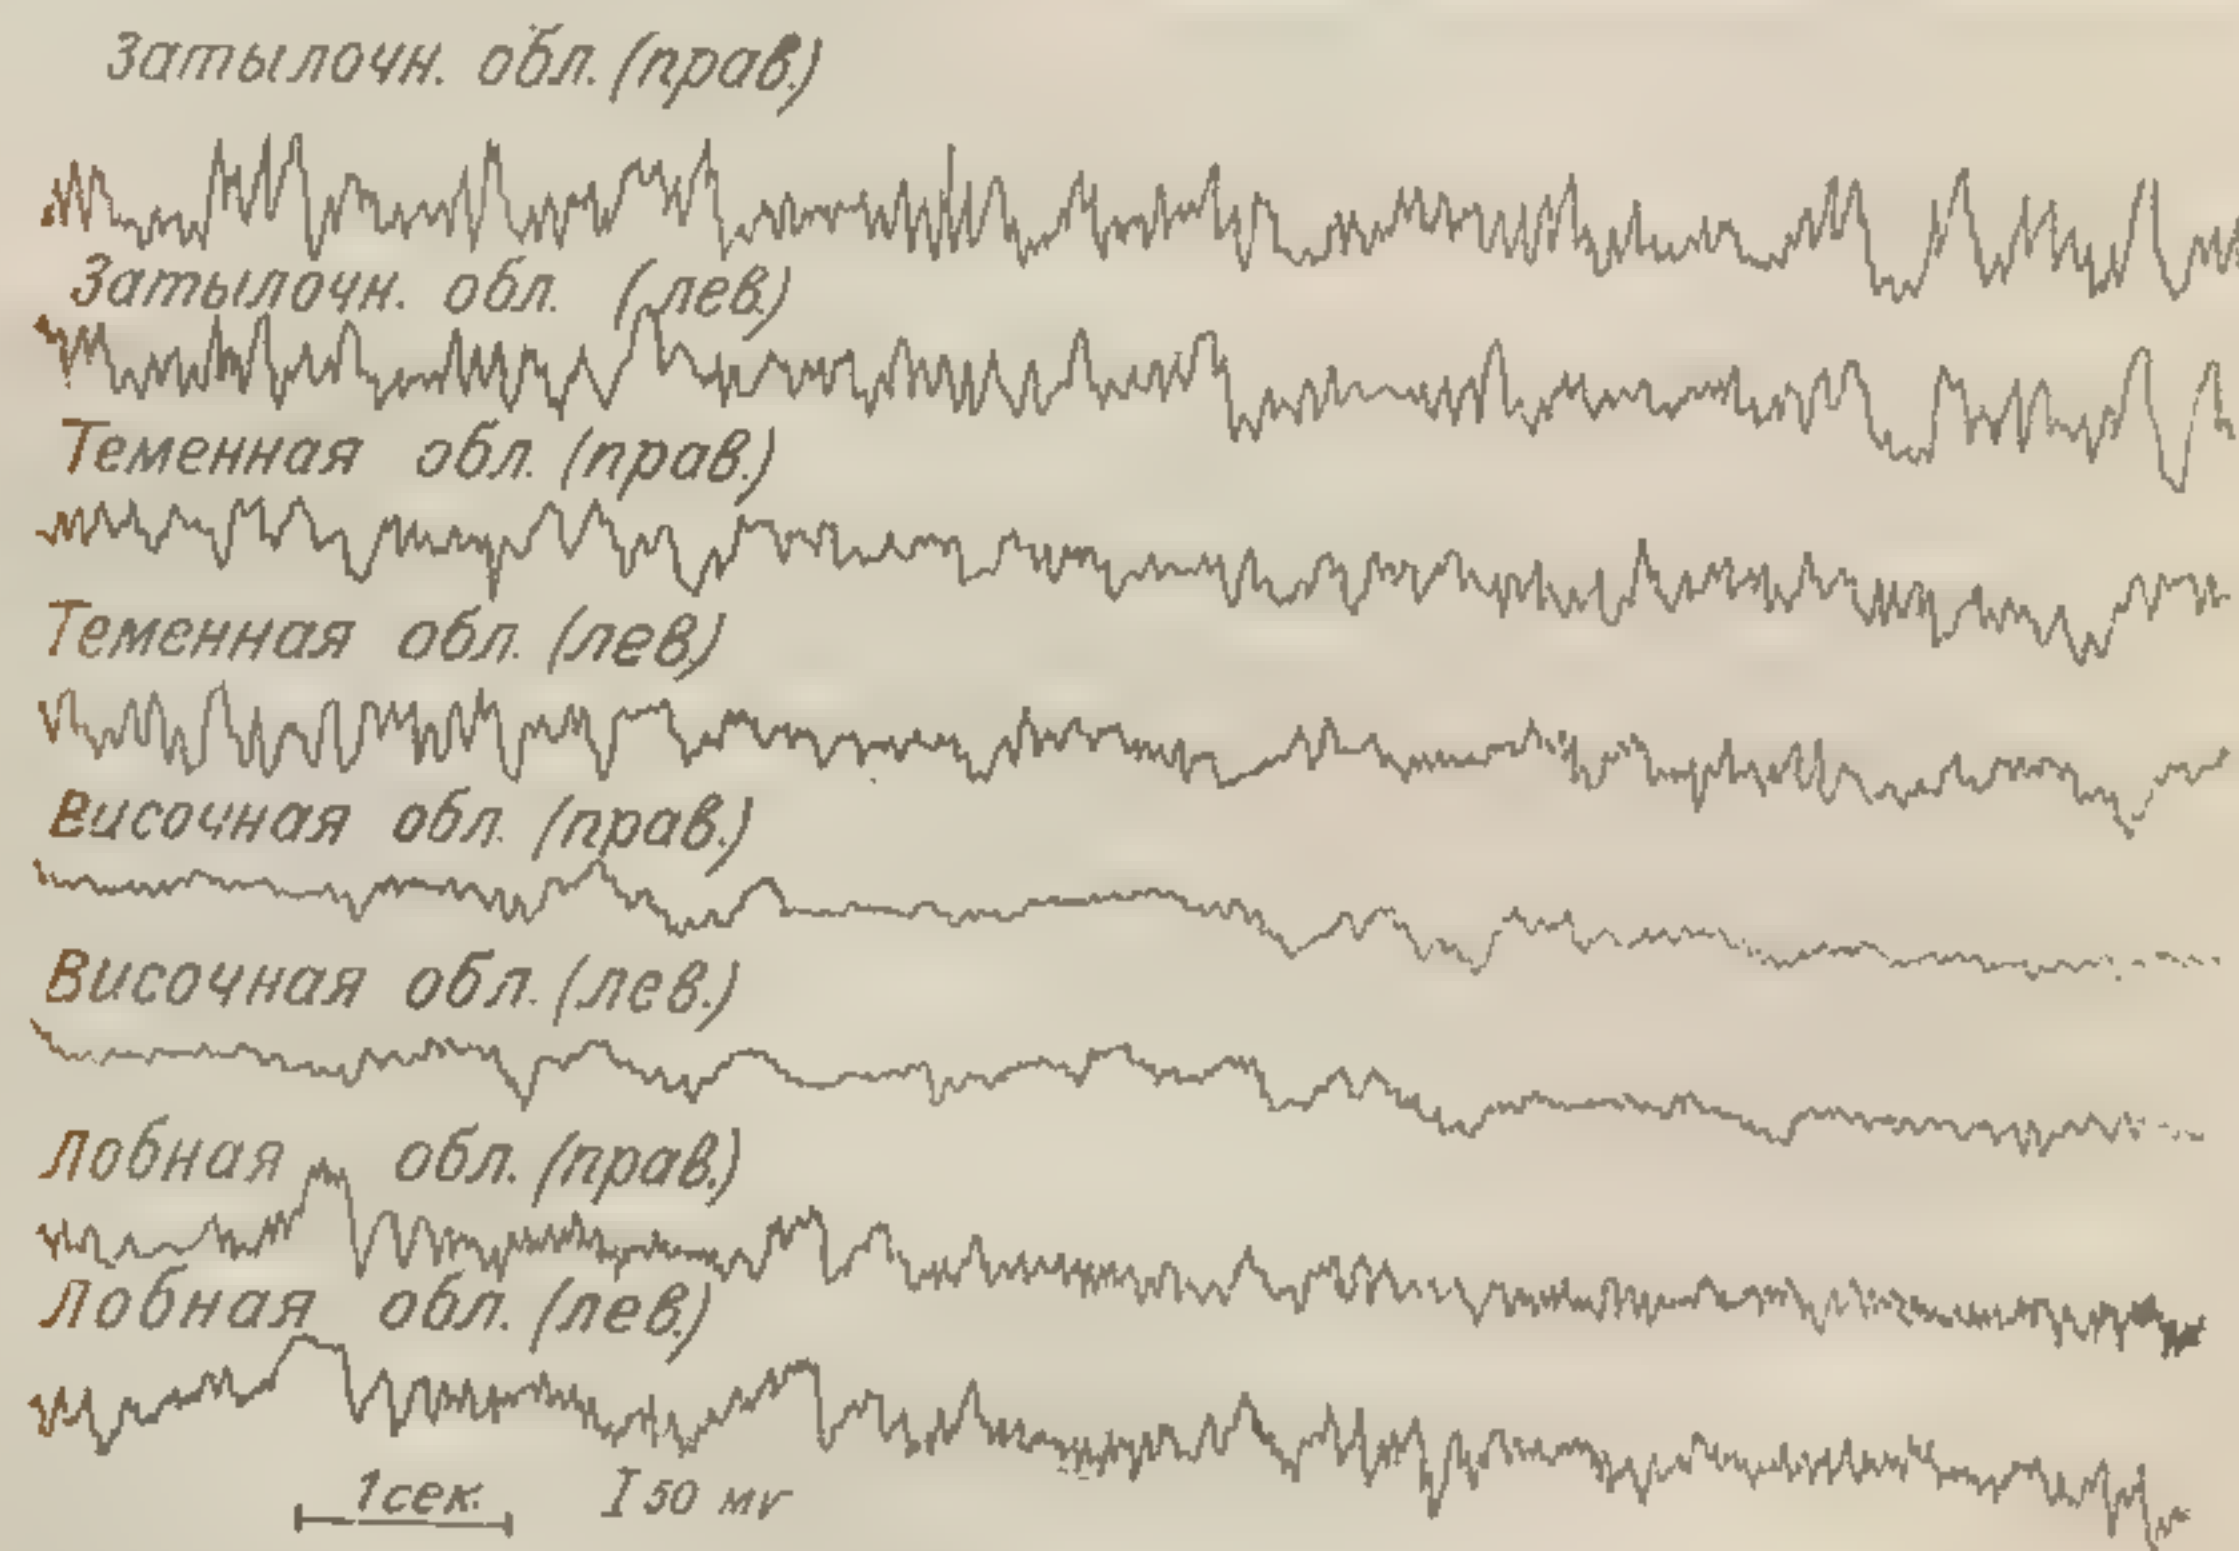 Затылочн. обл. (прав.)
Затылочн. обл. (лев.)
Теменная обл. (прав.)
Теменная обл. (лев.)
Височная обл. (прав.)
Височная обл. (лев.)
Лобная обл. (прав.)
Лобная обл. (лев.)
1 сек. 50 мv